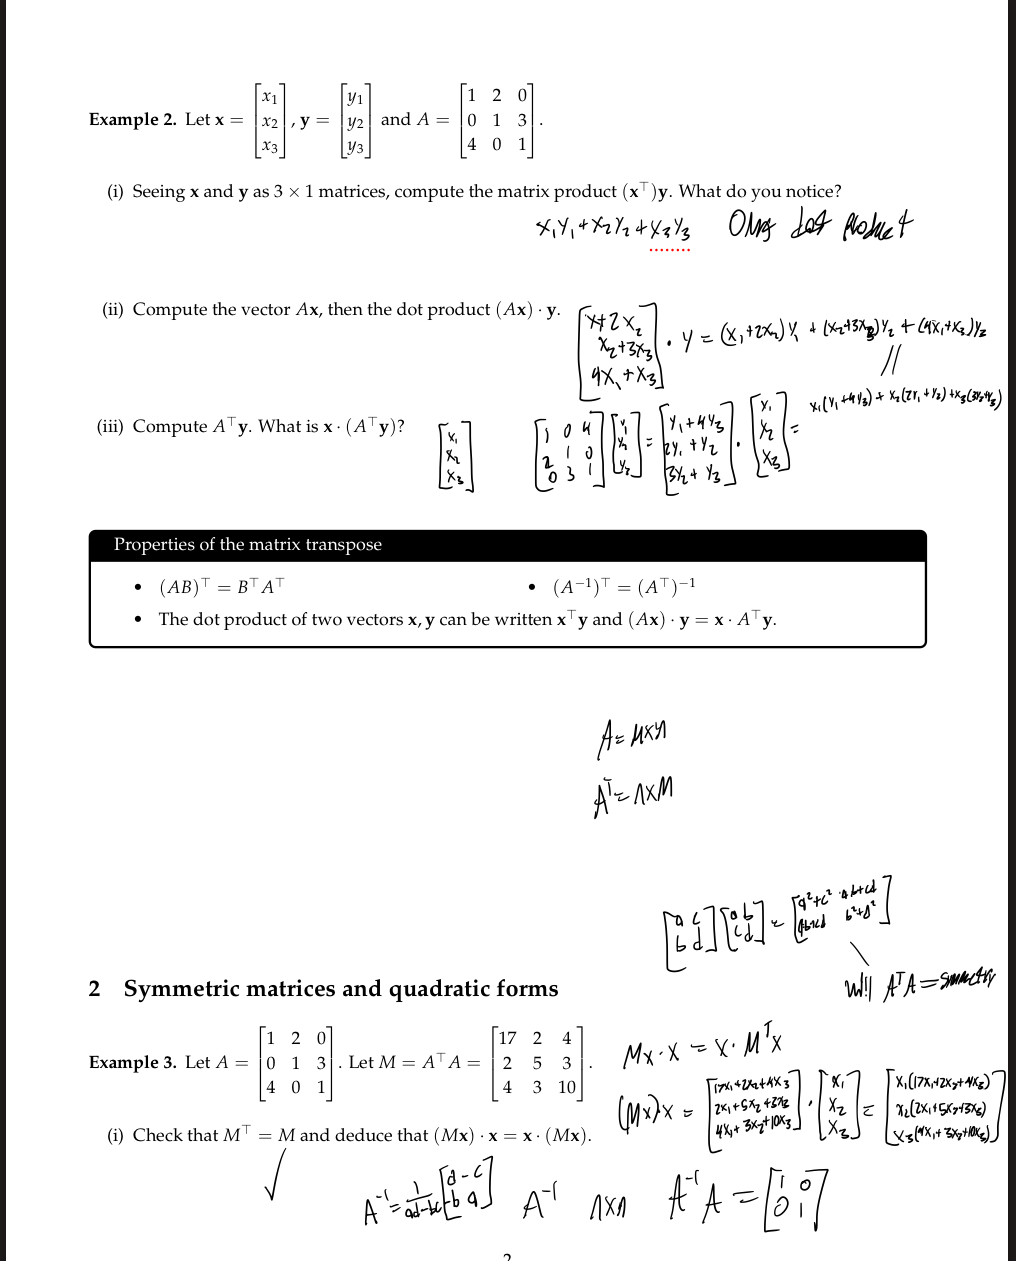 Example 2. Let x = [x₁ x₂ x₃], y = [y₁ y₂ y₃] and A = [1 2 0; 0 1 3; 4 0 1].
(i) Seeing x and y as 3 × 1 matrices, compute the matrix product (x⊤)y. What do you notice?
x₁y₁+x₂y₂+x₃y₃ OMG dot product
(ii) Compute the vector Ax, then the dot product (Ax) · y.
[x+2x₂; x₂+3x₃; 4x₁+x₃] · y = (x₁+2x₂)y₁ + (x₂+3x₃)y₂ + (4x₁+x₃)y₃
//
x₁(y₁+4y₃) + x₂(2y₁+y₂) + x₃(3y₂+y₃)
(iii) Compute A⊤y. What is x · (A⊤y)?
[x₁; x₂; x₃] [1 0 4; 2 1 0; 0 3 1][y₁; y₂; y₃] = [y₁+4y₃; 2y₁+y₂; 3y₂+y₃] · [x₁; x₂; x₃] =
Properties of the matrix transpose
• (AB)⊤ = B⊤A⊤ • (A⁻¹)⊤ = (A⊤)⁻¹
• The dot product of two vectors x, y can be written x⊤y and (Ax) · y = x · A⊤y.
A = m×n
Aᵀ = n×m
[a c; b d][a b; c d] = [a²+c² ab+cd; ab+cd b²+d²]
will AᵀA = symmetry
2 Symmetric matrices and quadratic forms
Example 3. Let A = [1 2 0; 0 1 3; 4 0 1]. Let M = A⊤A = [17 2 4; 2 5 3; 4 3 10].
Mx·x = x·Mᵀx
(Mx)x = [17x₁+2x₂+4x₃; 2x₁+5x₂+3x₃; 4x₁+3x₂+10x₃] · [x₁; x₂; x₃] = [x₁(17x₁+2x₂+4x₃); x₂(2x₁+5x₂+3x₃); x₃(4x₁+3x₂+10x₃)]
(i) Check that M⊤ = M and deduce that (Mx) · x = x · (Mx).
✓
A⁻¹ = 1/(ad-bc) [d -c; -b a] A⁻¹ n×n A⁻¹A = [1 0; 0 1]
2